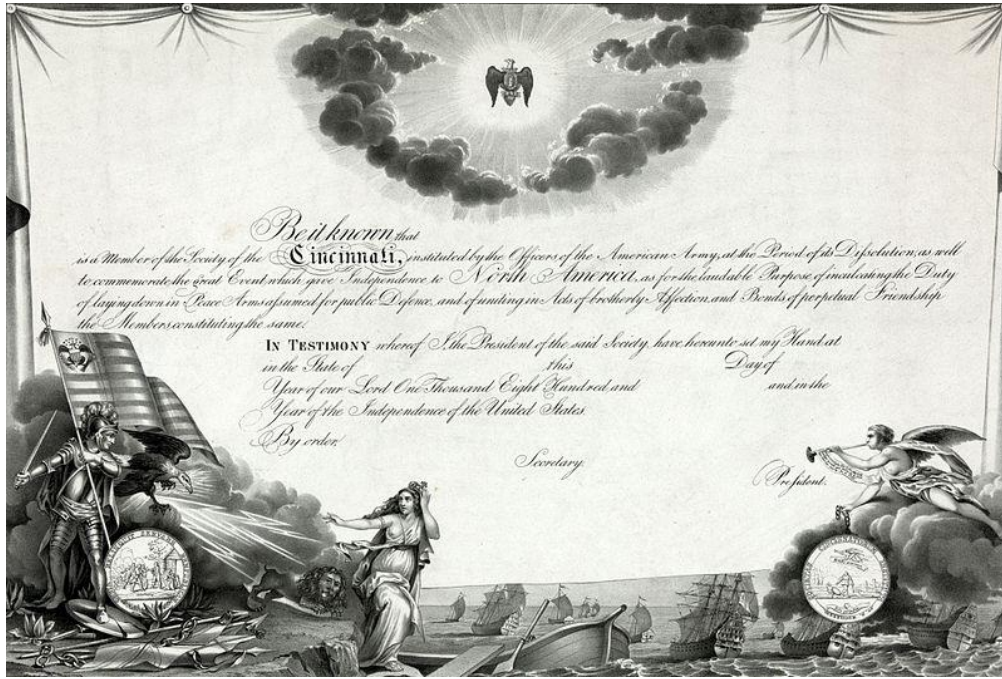 Be it known that
is a Member of the Society of the Cincinnati, instituted by the Officers of the American Army, at the Period of its Dissolution, as well
to commemorate the great Event which give Independence to North America, as for the laudable Purpose of inculcating the Duty
of laying down in Peace Arms assumed for public Defence, and of uniting in Acts of brotherly Affection, and Bonds of perpetual Friendship
the Members constituting the same.
IN TESTIMONY whereof I, the President of the said Society, have hereunto set my Hand at
in the State of this Day of
Year of our Lord One Thousand Eight Hundred and and in the
Year of the Independence of the United States.
By order,
Secretary.
President.